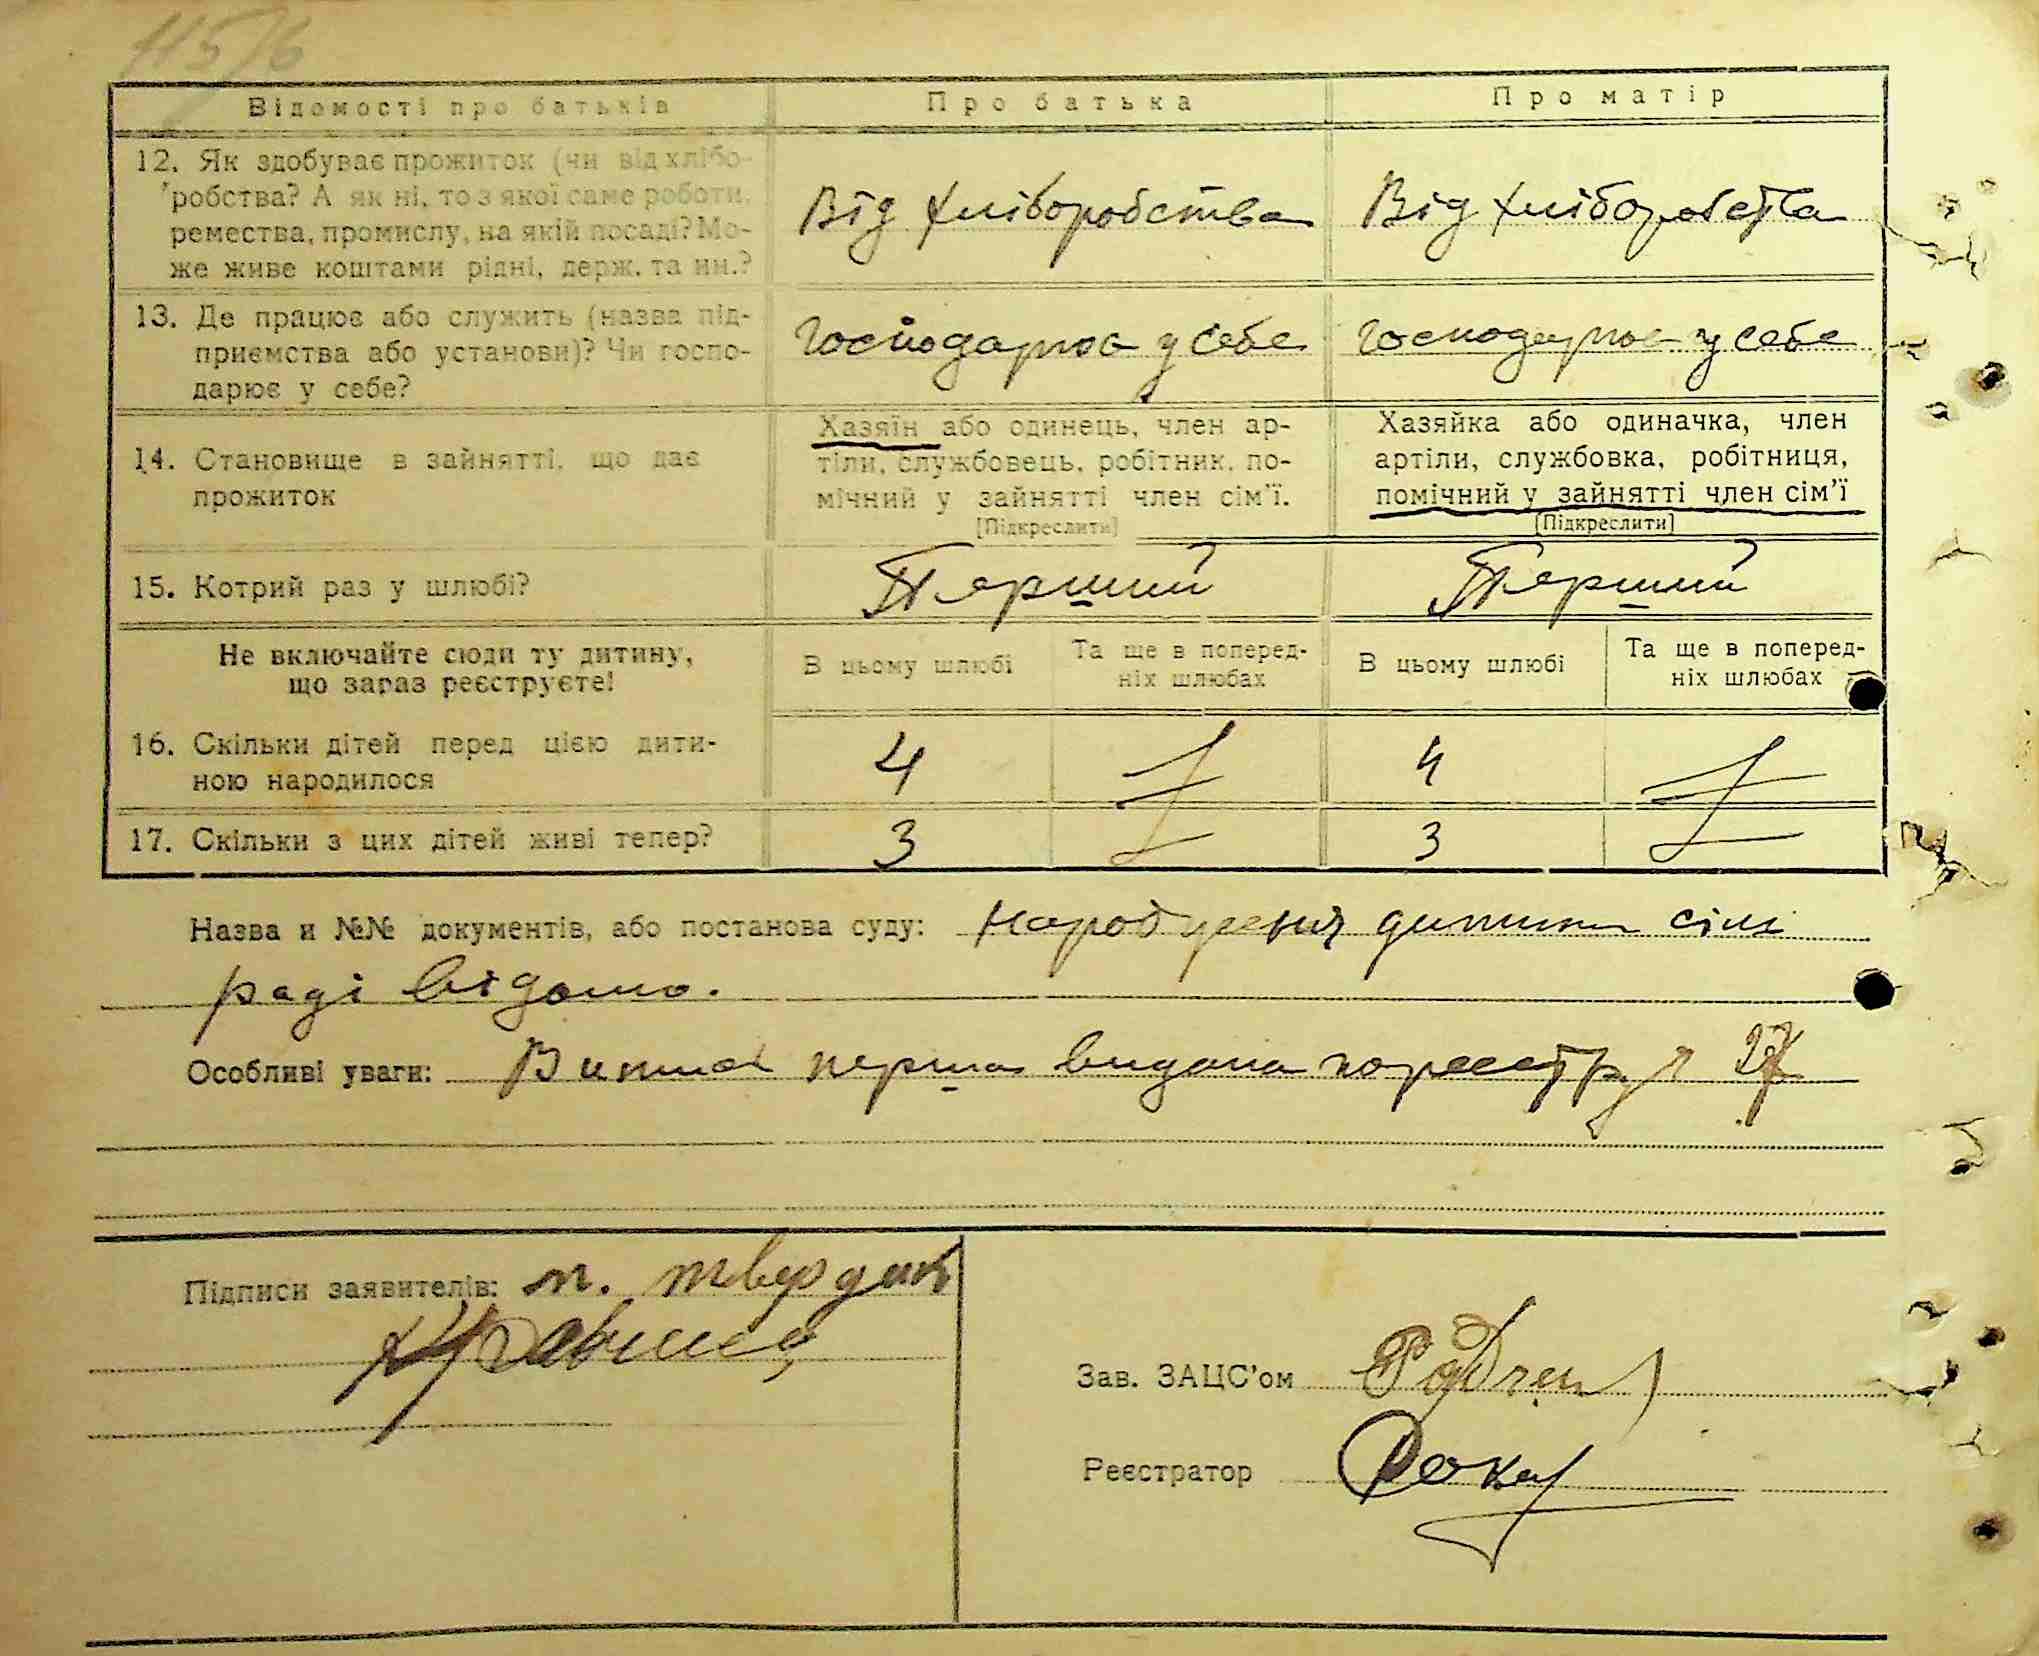 115/6
Відомості про батьків Про батька Про матір
12. Як здобуває прожиток (чи від хлібо-
робства? А як ні, то з якої саме роботи,
ремества, промислу, на якій посаді? Мо-
же живе коштами рідні, держ. та ин.?
Від хліборобства Від хліборобства
13. Де працює або служить (назва під-
приємства або установи)? Чи госпо-
дарює у себе?
Господарює у себе Господарює у себе
14. Становище в зайнятті, що дає
прожиток
Хазяїн або одинець, член ар-
тіли, службовець, робітник, по-
мічний у зайнятті член сім'ї.
[Підкреслити]
Хазяйка або одиначка, член
артіли, службовка, робітниця,
помічний у зайнятті член сім'ї
[Підкреслити]
15. Котрий раз у шлюбі? Перший Перший
Не включайте сюди ту дитину,
що зараз реєструєте!
В цьому шлюбі
Та ще в поперед-
ніх шлюбах
В цьому шлюбі
Та ще в поперед-
ніх шлюбах
16. Скільки дітей перед цією дити-
ною народилося
4 4
17. Скільки з цих дітей живі тепер? 3 3
Назва и №№ документів, або постанова суду: дитини сіль
раді відомо.
Особливі уваги: перша видана по реєстру
Підписи заявителів: т. твердик
Зав. ЗАЦС'ом
Реєстратор